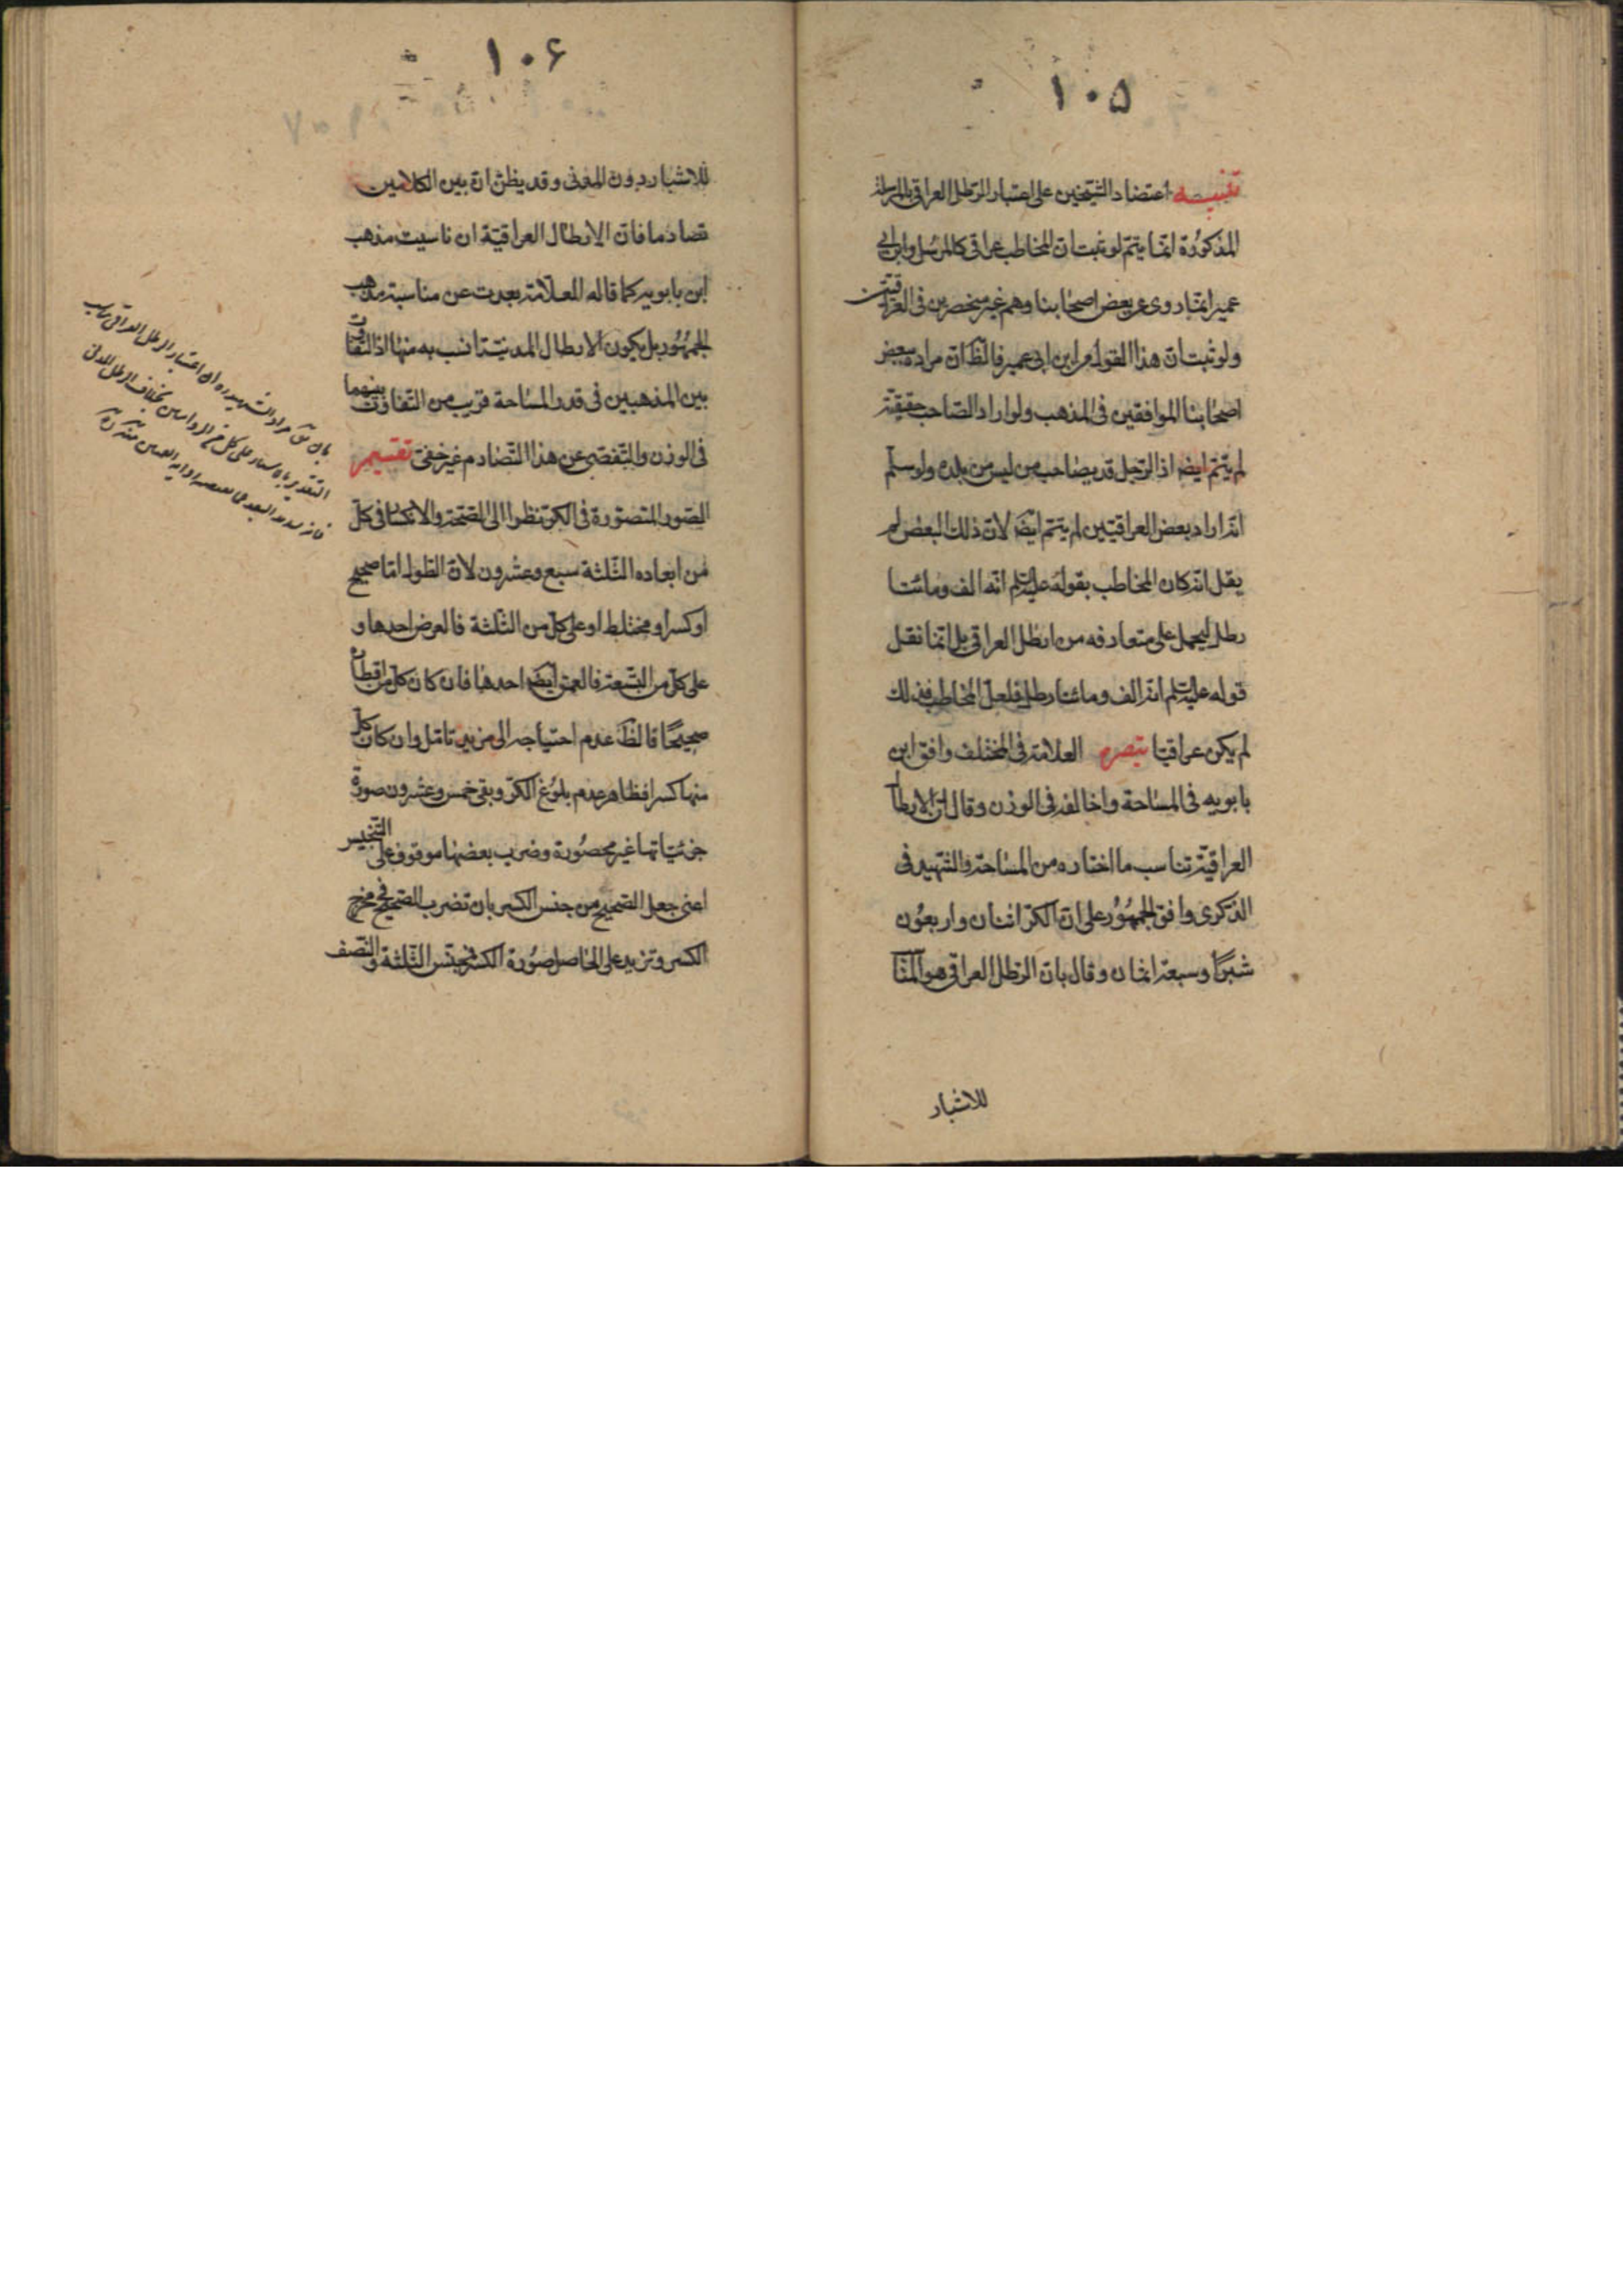 ١٠۵
تنبيه اعتضاد الشيخين على اعتبار الرطل العراقى بالمرسلة
المذكورة انما يتم لو ثبت ان المخاطب عراقى كالمرسل وابن ابى
عمير انما روى عن بعض اصحابنا وهم غير منحصرين فى العراقيين
ولو ثبت ان هذا القول من ابن ابى عمير فالظ ان مراده ببعض
اصحابنا الموافقين فى المذهب ولو اراد الصاحب حقيقة
لم يتم ايضا اذ الرجل قد يصاحب من ليس من بلده ولو سلم
انه اراد بعض العراقيين لم يتم ايضا لان ذلك البعض لم
يقل انه كان المخاطب بقوله عليه السلم انه الف ومائتا
رطل ليحمل على متعارفه من ارطل العراقى بل انما نقل
قوله عليه السلم انه الف ومائتا رطل فلعل المخاطب بذلك
لم يكن عراقيا تبصره العلامة فى المختلف وافق ابن
بابويه فى المساحة وخالفه فى الوزن وقال ان الارطال
العراقية تناسب ما اختاره من المساحة والشهيد فى
الذكرى وافق الجمهور على ان الكر اثنان واربعون
شبرًا وسبعة اثمان وقال بان الرطل العراقى هو المناسب
للاشبار
١٠۶
للاشبار دون المدنى وقد يظن ان بين الكلامين
تصادما فان الارطال العراقية ان ناسبت مذهب
ابن بابويه كما قاله العلامة بعدت عن مناسبة مذهب
الجمهور بل يكون الارطال المدنية انسب به منها اذ التفاوت
بين المذهبين فى قدر المساحة قريب من التفاوت بينهما
فى الوزن والتفصى عن هذا التصادم غير خفى تقسيم
الصور المتصورة فى الكر نظرا الى الصحة والانكسار فى كل
من ابعاده الثلثة سبع وعشرون لان الطول اما صحيح
او كسر او مختلط او على كل من الثلثة فالعرض احدها و
على كل من التسعة فالعمق ايضا احدها فان كان كل من اقطاره
صحيحًا فالظ عدم احتياجه الى مزيد تامل وان كان كل
منها كسرا فظاهر عدم بلوغ الكر وبقى خمس وعشرون صورة
جزئياتها غير محصورة وضرب بعضها موقوف على التجنيس
اعنى جعل الصحيح من جنس الكسر بان تضرب الصحيح فى مخرج
الكسر وتزيد على الحاصل صورة الكسر فمجنس الثلثة والنصف
بان يق مراد الشهيد ره ان اعتبار الرطل العراقى يناسب
التقدير بالاشبار على كل من الروايتين بخلاف الرطل المدنى